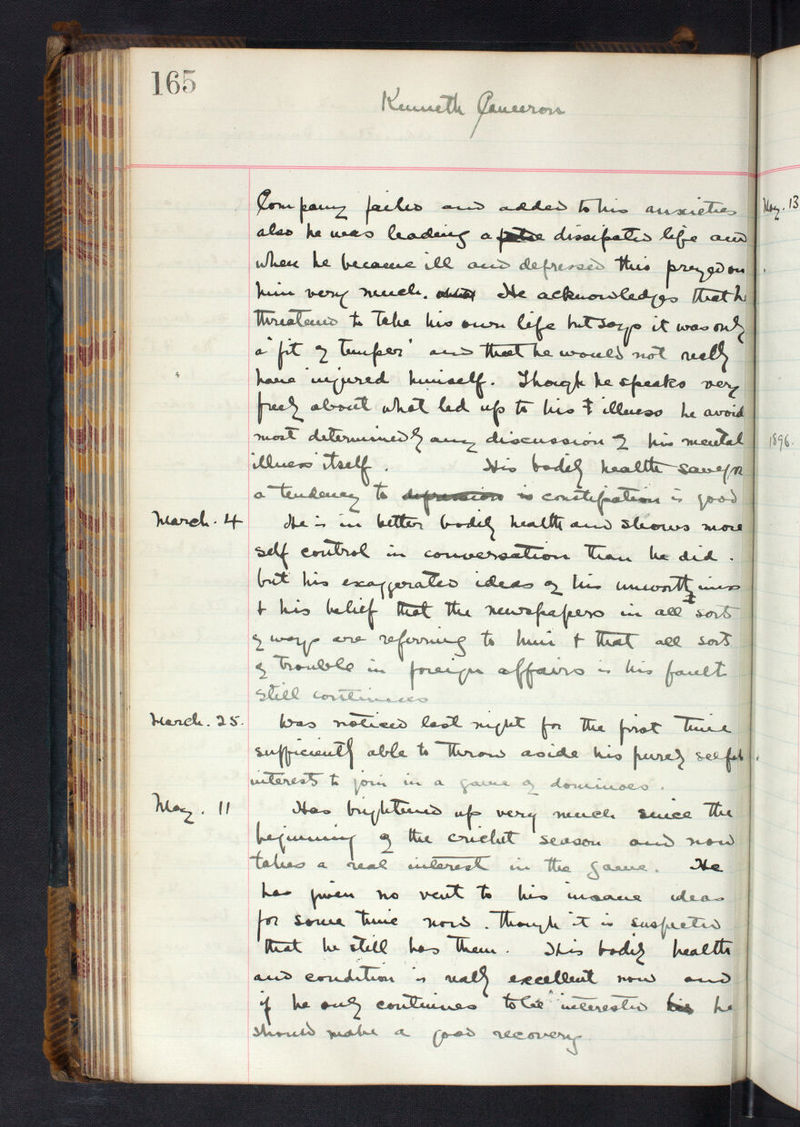 165
Kenneth Cameron
Company failed and added to his anxieties
also he was leading a dissipated life and
when he became ill and depressed this preyed on
him very much. He acknowledges that h
threatened to take his own life but says it was only
a "fit of temper" and that he would not really
have injured himself. Though he speaks very
freely about what led up to his illness he avoid
most determinedly any discussion of his mental
illness itself. His bodily health save for
a tendency to depression is constipation is good
March. 4 He is in better bodily health and shows more
self control in conversation than he did.
but his exaggerated ideas of his unworthiness
& his belief that the newspapers in all sorts
of ways are referring to him & that all sorts
of trouble in foreign affairs is his fault
still continues
March. 25. Was noticed last night for the first time
sufficiently able to throw aside his purely selfish
interests to join in a game of dominoes.
May. 11 Has brightened up very much since the
beginning of the cricket season and now
takes a real interest in the game. He
has given no vent to his insane ideas
for some time now. though it is suspected
that he still has them. His bodily health
and condition is really excellent now and
if he only continues to be interested his he
should make a good recovery.
May. 13
1896.